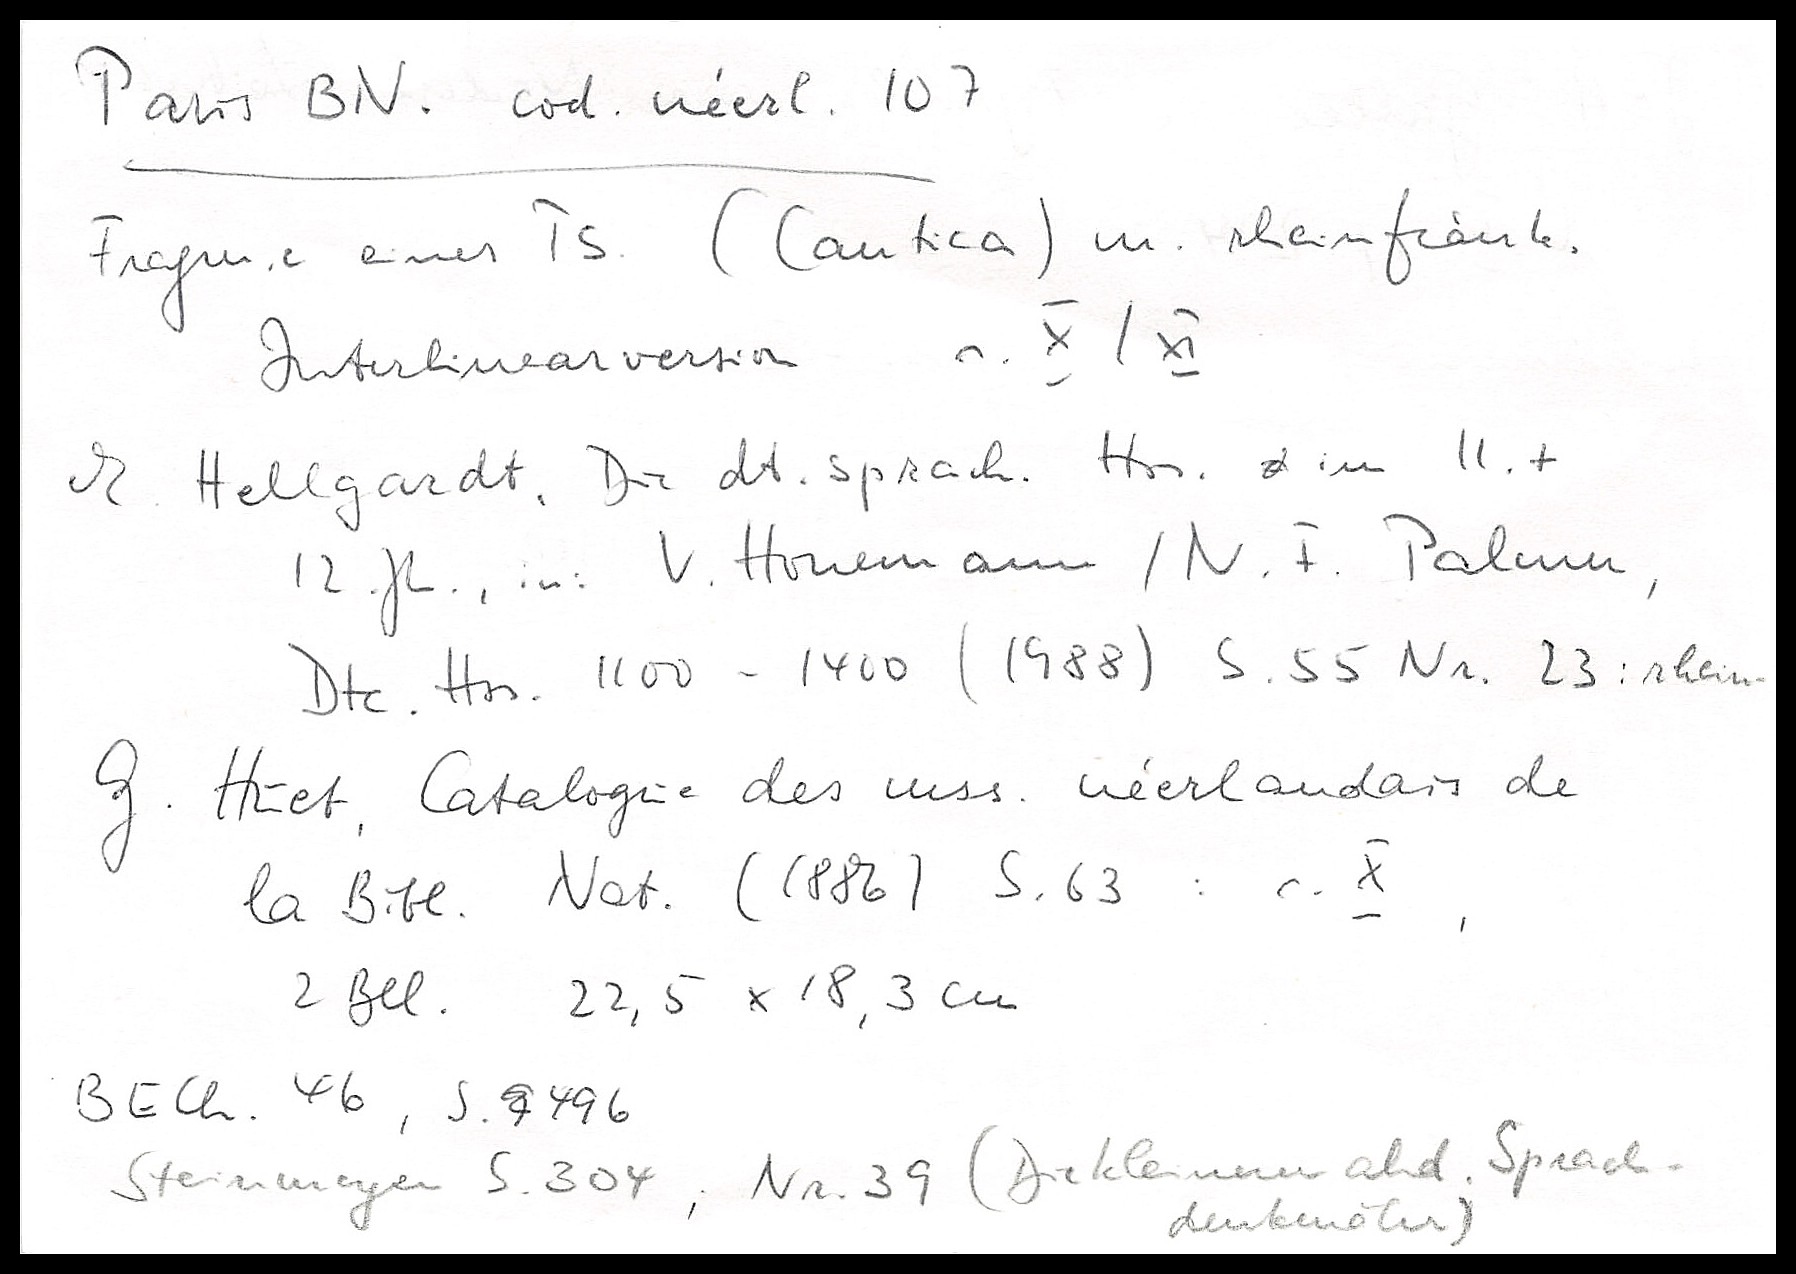 Paris BN. cod. néerl. 107
Fragm. e eines Ps. (Cantica) m. rheinfränk.
Interlinearversion s. X / XI
E. Hellgardt, Die dt.sprach. Hss. im 11. +
12. Jh., in: V. Honemann / N. F. Palmer,
Dte. Hss. 1100 - 1400 (1988) S. 55 Nr. 23: rhein-
G. Huet, Catalogue des mss. néerlandais de
la Bibl. Nat. (1886) S. 63 : s. X,
2 Bll. 22,5 x 18,3 cm
BECh. 46, S. 496
Steinmeyer S. 304, Nr. 39 (Die kleineren ahd. Sprach-
denkmäler)